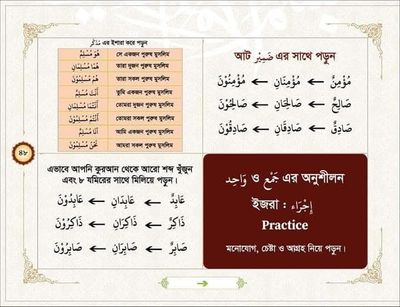 مُذَكَّرْ এর ইশারা করে পড়ুন
هُوَ مُسْلِمٌ সে একজন পুরুষ মুসলিম
هُمَا مُسْلِمَانِ তারা দুজন পুরুষ মুসলিম
هُمْ مُسْلِمُوْنَ তারা সকল পুরুষ মুসলিম
أَنْتَ مُسْلِمٌ তুমি একজন পুরুষ মুসলিম
أَنْتُمَا مُسْلِمَانِ তোমরা দুজন পুরুষ মুসলিম
أَنْتُمْ مُسْلِمُوْنَ তোমরা সকল পুরুষ মুসলিম
أَنَا مُسْلِمٌ আমি একজন পুরুষ মুসলিম
نَحْنُ مُسْلِمُوْنَ আমরা সকল পুরুষ মুসলিম
আট ضَمِيْر এর সাথে পড়ুন
مُؤْمِنٌ ← مُؤْمِنَانِ ← مُؤْمِنُوْنَ
صَالِحٌ ← صَالِحَانِ ← صَالِحُوْنَ
صَادِقٌ ← صَادِقَانِ ← صَادِقُوْنَ
৪৮
এভাবে আপনি কুরআন থেকে আরো শব্দ খুঁজুন
এবং ৮ যমিরের সাথে মিলিয়ে পড়ুন।
عَابِدٌ ← عَابِدَانِ ← عَابِدُوْنَ
ذَاكِرٌ ← ذَاكِرَانِ ← ذَاكِرُوْنَ
صَابِرٌ ← صَابِرَانِ ← صَابِرُوْنَ
وَاحِد ও جَمْع এর অনুশীলন
ইজরা : إِجْرَاء
Practice
মনোযোগ, চেষ্টা ও আগ্রহ নিয়ে পড়ুন।